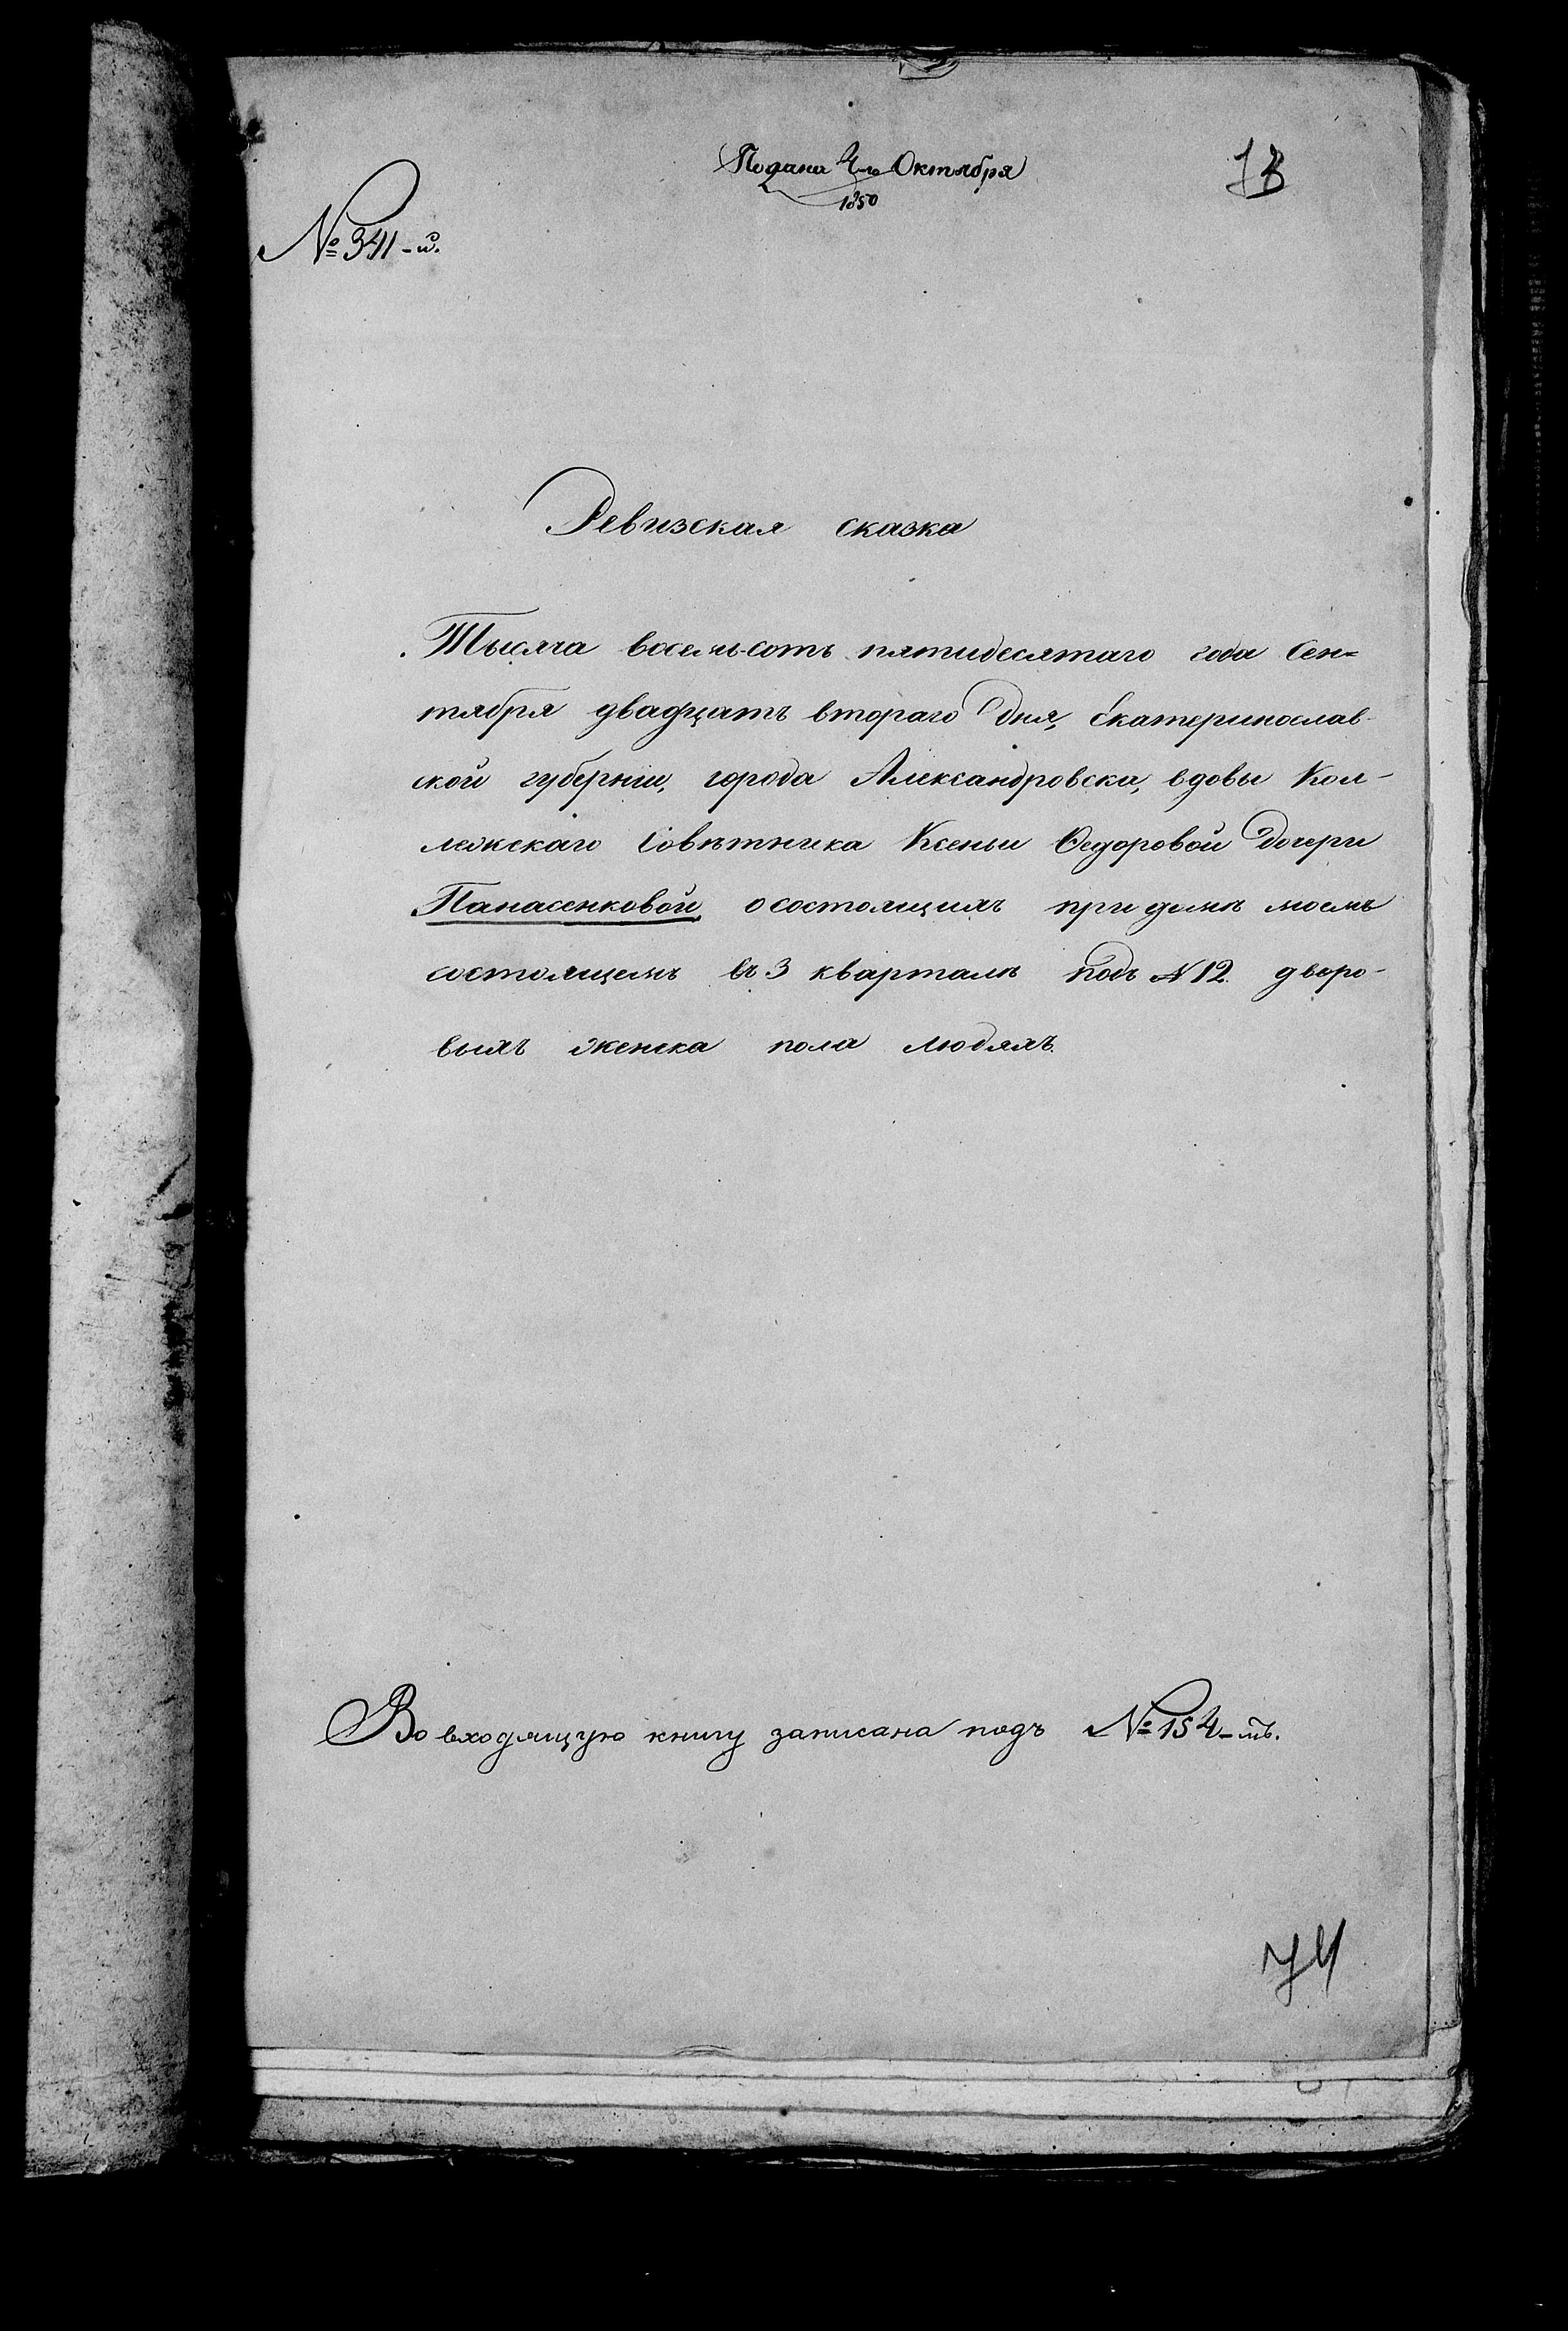 Подана 4-го Октября
1850
73
№ 341-й.
Ревизская сказка
Тысяча восемь-сотъ пятидесятаго года Сен=
тября двадцать втораго дня, Екатеринослав-
ской губерніи, города Александровска, вдовы Кол-
лежскаго Совѣтника Ксеньи Ѳедоровой дочери
Панасенковой о состоящихъ при домѣ моемъ
состоящемъ въ 3 кварталѣ подъ № 12 дворо-
выхъ женска пола людяхъ.
Во входящую книгу записана подъ № 154-мъ.
74